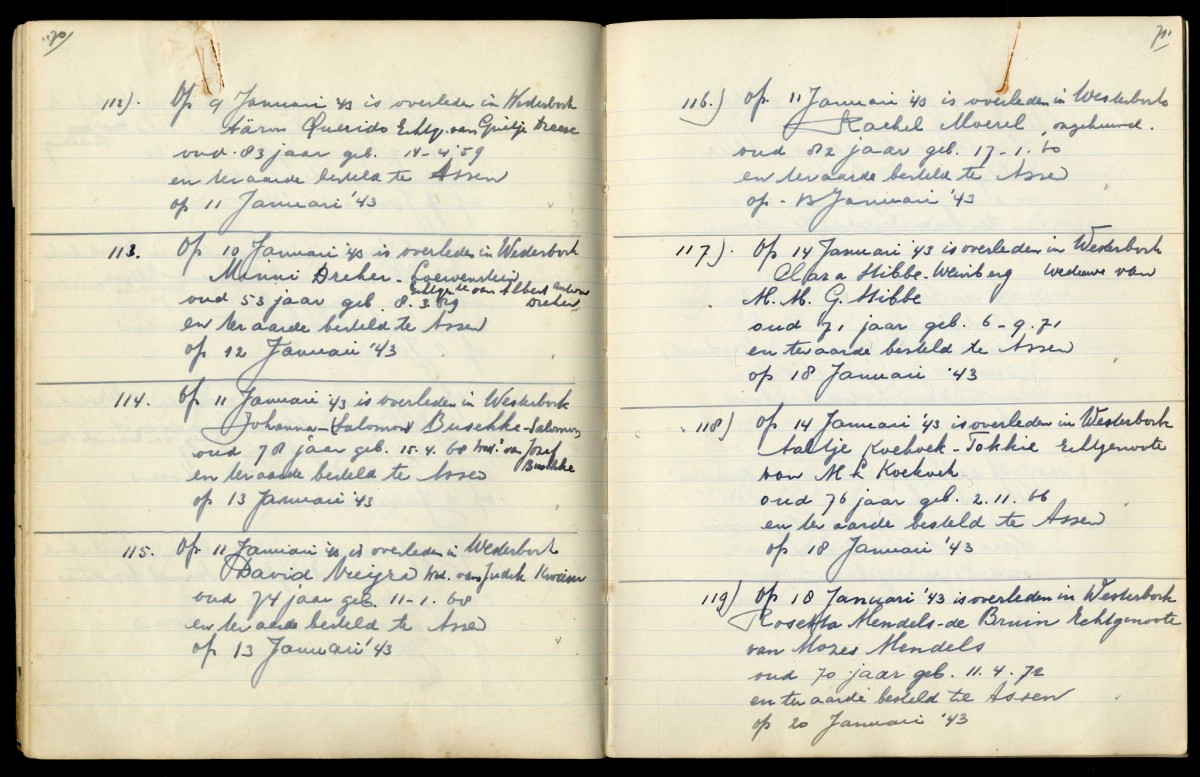 "70
112). Op 9 Januari '43 is overleden in Westerbork
Aäron Querido Echtg. van Grietje Dresse
oud 83 jaar geb. 14-4-'59
en ter aarde besteld te Assen
op 11 Januari '43
113. Op 10 Januari '43 is overleden in Westerbork
Minni Dreher-Loewenstein
Echtgte van Albert Anton
oud 53 jaar geb. 8.3.89 Dreher
en ter aarde besteld te Assen
op 12 Januari '43
114. Op 11 Januari '43 is overleden in Westerbork
Johanna (Salomon) Buschke-Salomon
oud 78 jaar geb. 15.4.68 Wed. van Josef
Buschke
en ter aarde besteld te Assen
op 13 Januari '43
115. Op 11 Januari '43 is overleden in Westerbork
David Vieijra Wed. van Judik
oud 74 jaar geb. 11-1.68
en ter aarde besteld te Assen
op 13 Januari '43
71"
116.) Op. 11 Januari '43 is overleden in Westerbork
Rachel Moerel, ongehuwd.
oud 82 jaar geb. 17.1.60
en ter aarde besteld te Assen
op - 13 Januari '43
117). Op 14 Januari '43 is overleden in Westerbork
Clara Stibbe-Weinberg Weduwe van
M. M. G. Stibbe
oud 71 jaar geb. 6-9.71
en ter aarde besteld te Assen
op 18 Januari '43
118) Op 14 Januari '43 is overleden in Westerbork
Aaltje Koekoek-Tokkie Echtgenoote
van M L Koekoek
oud 76 jaar geb. 2.11.66
en ter aarde besteld te Assen
op 18 Januari '43
119) Op 18 Januari '43 is overleden in Westerbork
Rosetta Mendels-de Bruin Echtgenoote
van Mozes Mendels
oud 70 jaar geb. 11.4.72
en ter aarde besteld te Assen
op 20 Januari '43